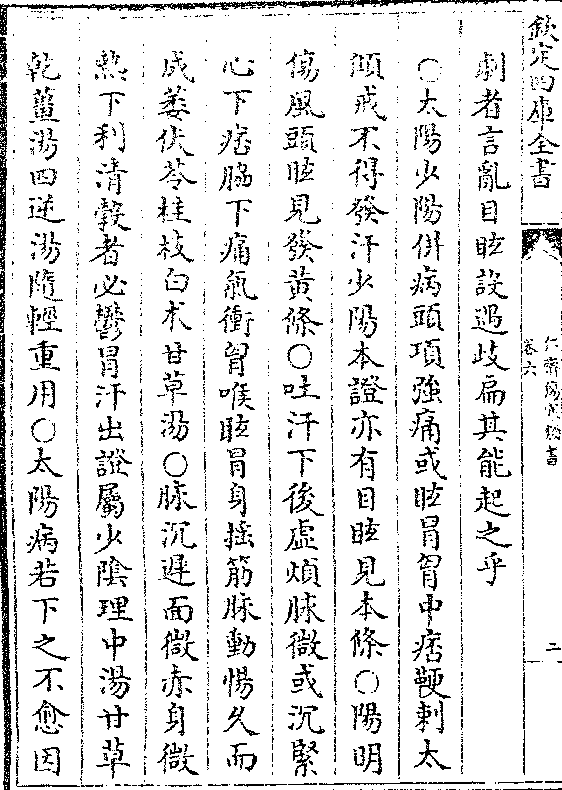 欽定四庫全書
仁齋傷寒類書
卷六
二
劇者言亂目眩設遇歧扁其能起之乎
○太陽少陽併病頭項強痛或眩冒胷中痞鞕刺太
傾戒不得發汗少陽本證亦有目眩見本條○陽明
傷風頭眩見發黃條○吐汗下後虛煩脉微或沉緊
心下痞脇下痛氣衝胷喉眩冒身揺筋脉動惕久而
成萎伏苓桂枝白朮甘草湯○脉沉遲面微赤身微
熱下利清穀者必鬱冒汗出證屬少陰理中湯甘草
乾薑湯四逆湯隨輕重用○太陽病若下之不愈因